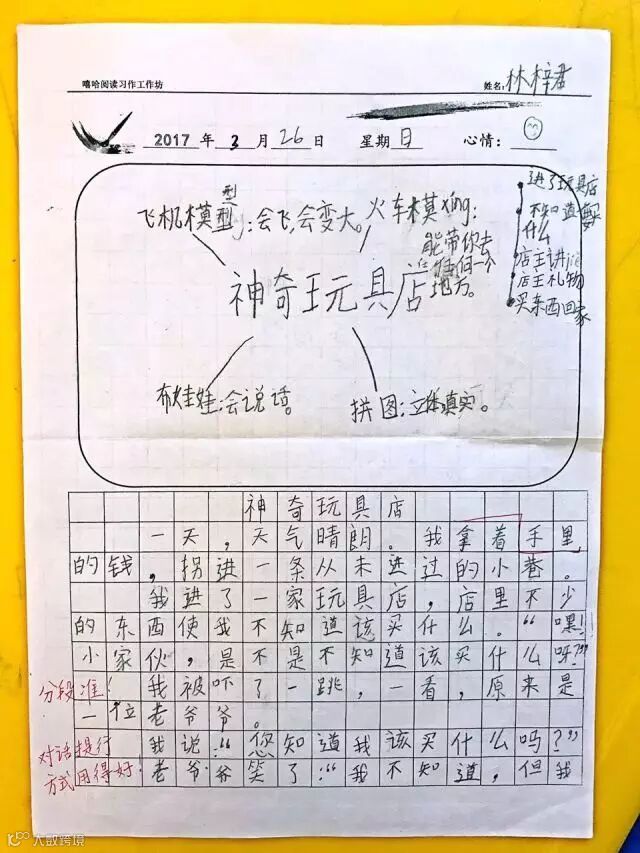 嘻哈阅读习作工作坊
姓名:林梓君
2017 年 3 月 26 日 星期 日 心情:
型
飞机模型:会飞,会变大。
火车模xing:
能带你去
任何一个
地方。
进了玩具店
不知道要买
什么
店主讲jie
店主礼物
买东西回家
神奇玩具店
布娃娃:会说话。
拼图:立体真实。
神奇玩具店
一天,天气晴朗。我拿着手里
的钱,拐进一条从未进过的小巷。
我进了一家玩具店,店里不少
的东西使我不知道该买什么。“嘿!
小家伙,是不是不知道该买什么呀?”
分段准!
我被吓了一跳,一看,原来是
一位老爷爷。
对话提行
我说:“您知道我该买什么吗?”
方式用得好!
老爷爷笑了:“我不知道,但我
大数跨境